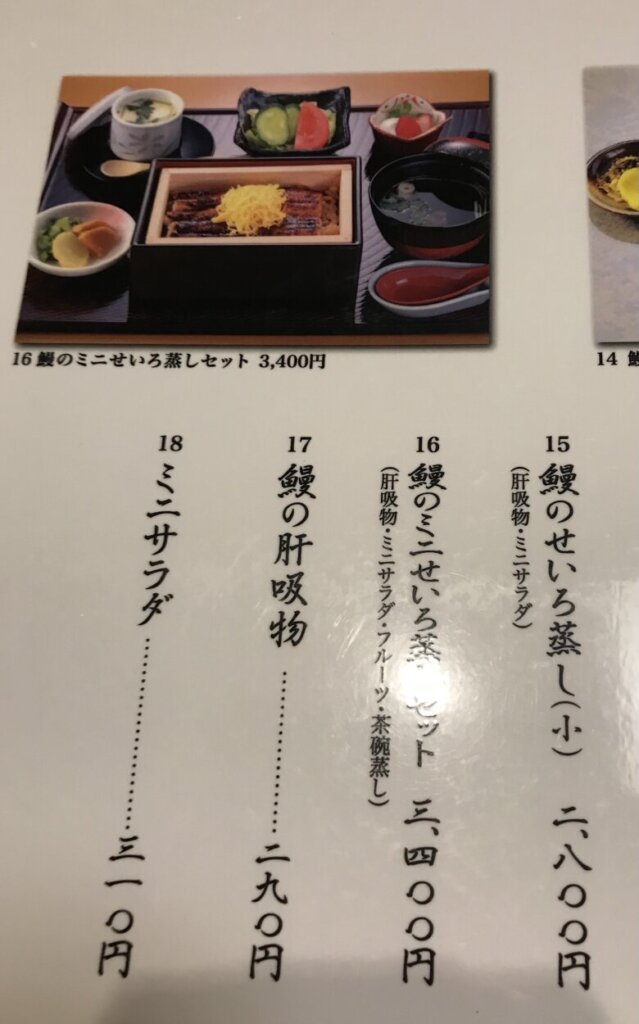 16 鰻のミニせいろ蒸しセット 3,400円
14 鰻
15
鰻のせいろ蒸し(小) 二、八〇〇円
(肝吸物・ミニサラダ)
16
鰻のミニせいろ蒸 セット 三、四〇〇円
(肝吸物・ミニサラダ・フルーツ・茶碗蒸し)
17
鰻の肝吸物 ………… 二九〇円
18
ミニサラダ ………… 三一〇円